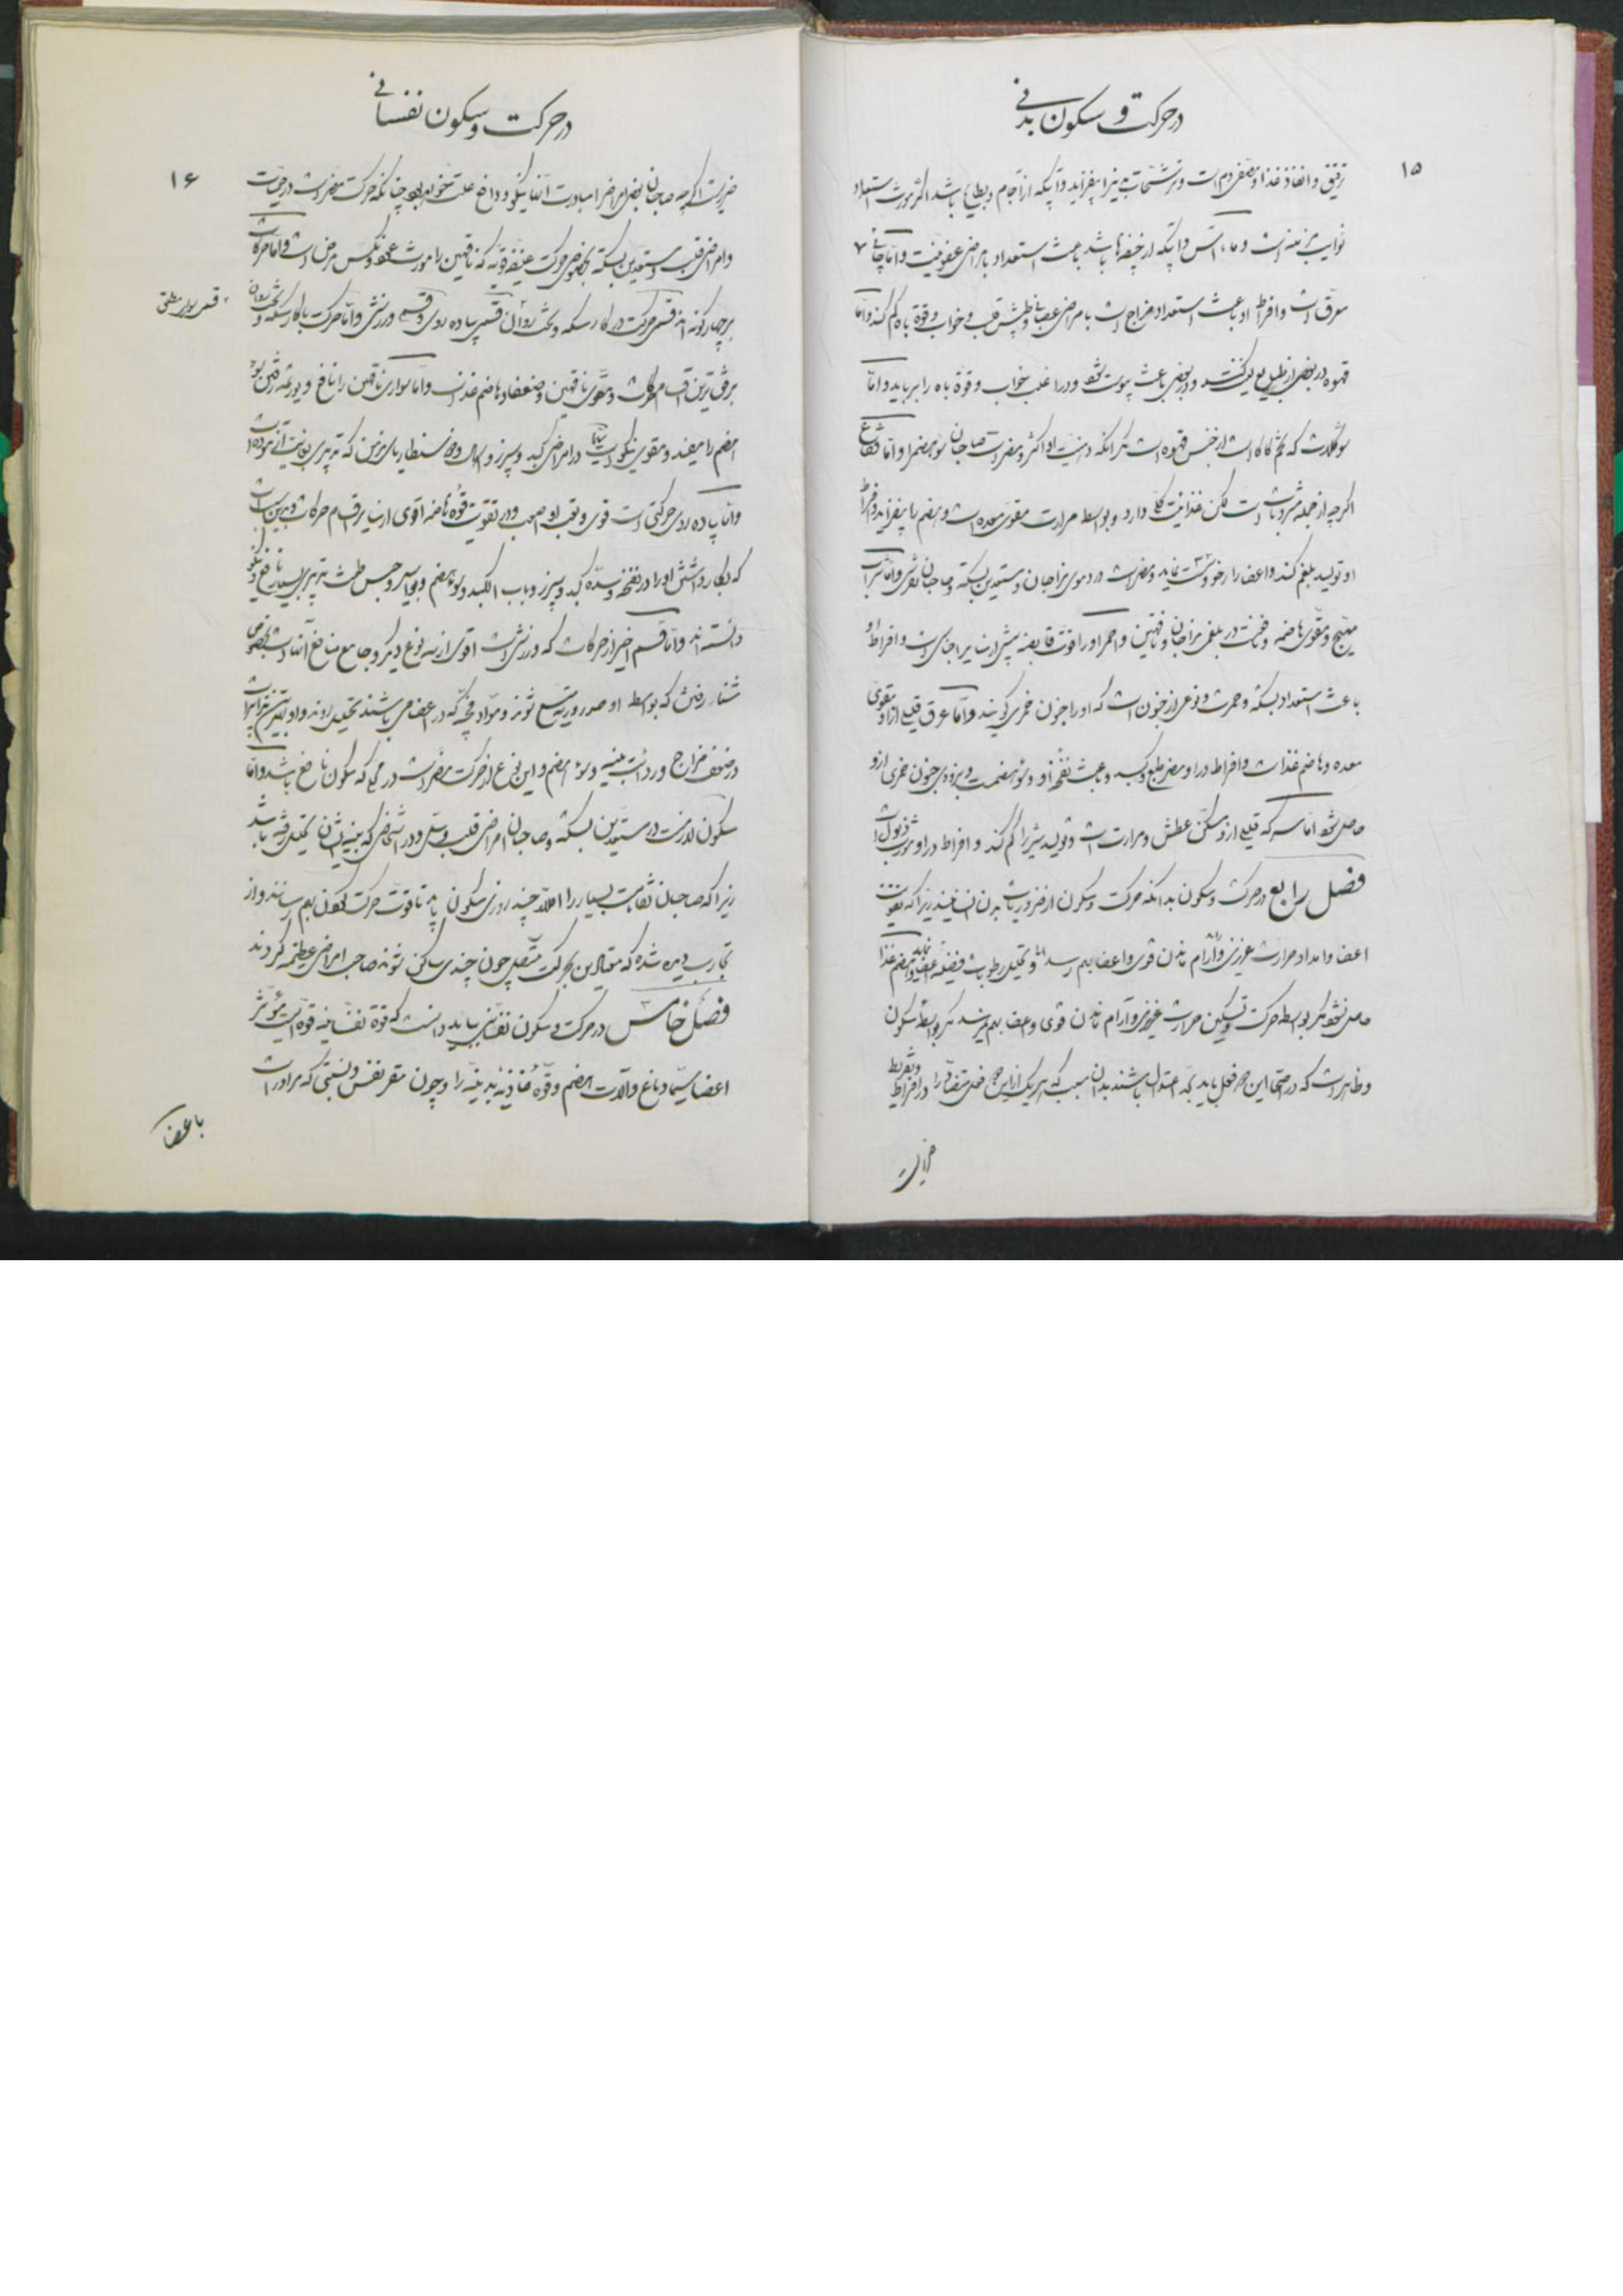 در حرکت و سکون بدنی
۱۵
رقیق و انفاذ غذا و مصفی دم است و ترشحات را نیز بیفزاید و آبیکه از آجام و بطایح باشد اکثر مورث استعداد
نوایب مزمنه است و ماء آس و آبیکه از چشمه‌ها باشد باعث استعداد بامراض عفونیت و اما چائی
معرق است و افراط او باعث استعداد مزاج است بامراض عصبانی و طپش قلب و خواب و قوة باه کم کند و اما
قهوه در بعضی از طبایع تولید و در بعضی باعث یبوست شود و در اغلب خواب و قوة باه را برباید و اما
که تخم کاکائو است از جنس قهوه است مگر آنکه دهنیت او اکثر و مضر است صاحبان سوء هضم را و اما فقاع
اگرچه از جمله مشروبات است لکن غذائیت کلی دارد و بواسطه مرارت مقوی معده است و هضم را بیفزاید و افراط
او تولید بلغم کند و اعضا را رخو و سست نماید و مضر است در دموی مزاجان و مستعدین بسکته و صاحبان نقرس و اما شراب
مهیج و مقوی هاضمه و مسخن است در بلغمی مزاجان و ناقهین و احمر او را قوت قابضه بیش از سایر اجناس است و افراط او
باعث استعداد بسکته و حمرت و نوعی از جنون است که او را جنون خمری گویند و اما عرق قلیلی از او مقوی
معده و هاضم غذاست و افراط در او مضر بطبع و کبد و باعث نفخ او و سوء هضم است و بزودی جنون خمری از او
حاصل شود اما سرکه قلیلی از او مسکن عطش و حرارت است و تولید شیر را کم کند و افراط در او مورث ذبول است
فصل رابع در حرکت و سکون بدانکه حرکت و سکون از ضروریات بدن انسانیند زیرا که تقویت
اعضا و امداد حرارت غریزی و آرام ماندن قوی و اعضا بهم رساند و تحلیل رطوبات فضلیه اعضا نماید و هضم غذا
حاصل نشود مگر بواسطه حرکت و تسکین حرارت غریزی و آرام ماندن قوی و اعضا بهم نرسد مگر بواسطه سکون
و ظاهر است که در صحت این هر دو فعل باید بحد اعتدال باشند بدان سبب که هر یک از این دو فعل متضاد را در افراط و تفریط
ضرریست
در حرکت و سکون نفسانی
۱۶
ضرریست اگرچه صاحبان بعض امراض را مبادرت آنها نیکو و دافع علت خواهد بود چنانکه حرکت مضر است در حمیات
و امراض قلب و مستعدین بسکته بخصوص حرکت عنیفه قویه که ناقهین را مورث ضعف و نکس مرض است و اما حرکات
بر چهار گونه‌اند قسمی حرکت در کالسکه و تخت روان قسمی پیاده روی و قسمی ورزش و اما حرکت با کالسکه و تخت روان
قسمی سواری مطلق
برفق‌ترین اقسام حرکات و مقوی ناقهین و ضعفا و هاضم غذاست و اما سواری ناقهین را نافع و یورتمه رفتن
هضم را مفید و مقوی نیکو است سیما در امراض کبد و سپرز و اسهال و دوسنطاریای مزمن که تدبیری بمانیت آن نبوده است
و اما پیاده روی حرکتی است قوی و تعب او اصعب و در تقویت قوه هاضمه اقوی از سایر اقسام حرکات و بدین سبب است
که بکار داشتن او را در نفخ و سده کبد و سپرز و باب الکبد و سوء هضم و بواسیر و حبس طمث تدبیری بسیار نافع و نیکو
دانسته‌اند و اما قسم اخیر از حرکات که ورزش است اقوی از سه نوع دیگر و جامع منافع آنهاست بخصوص
شنا رفتن که بواسطه او صدر و ریه متسع شوند و مواد فجه که در اعضا می‌باشند تحلیل روند و او بهترین تدابیر است
در ضعف مزاج و ردائت بنیه و سوء هضم و این نوع از حرکت مضر است در محلی که سکون نافع باشد و اما
سکون لازمست در مستعدین بسکته و صاحبان امراض قلب و سل و در اشخاصی که بنیه ایشان بتحلیل رفته باشد
زیرا که صاحبان نقاهت بسیار را اقلا چند روزی سکون باید تا قوت حرکت کردن بهم رسانند و از
تجارب دیده شده که معتادین بحرکت متصل چون چندی ساکن شوند صاحب امراض عظیمه گردند
فصل خامس در حرکت و سکون نفسانی بباید دانست که قوة نفسانیه قوه ایست مؤثر
اعضا سیما دماغ و آلات هضم و قوه غاذیه بدینه را و چون مقر نفس و نسبتی که مر او راست
با اعضا